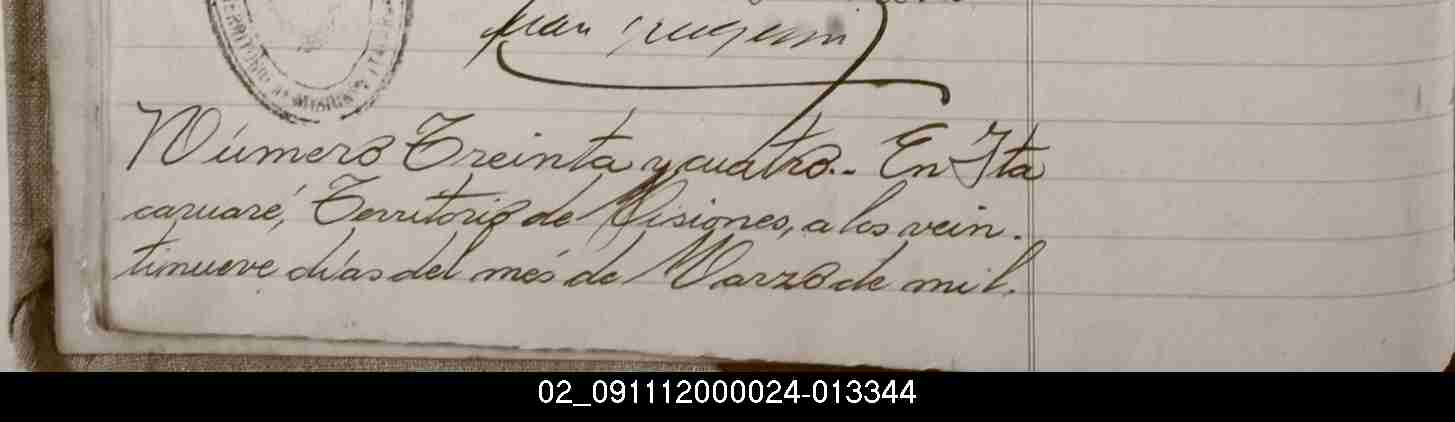 TERRITORIO DE MISIONES
Juan
Número Treinta y cuatro.. En Ita
caruaré, Territorio de Misiones, a los vein-
tinueve días del més de Marzo de mil.
02_091112000024-013344